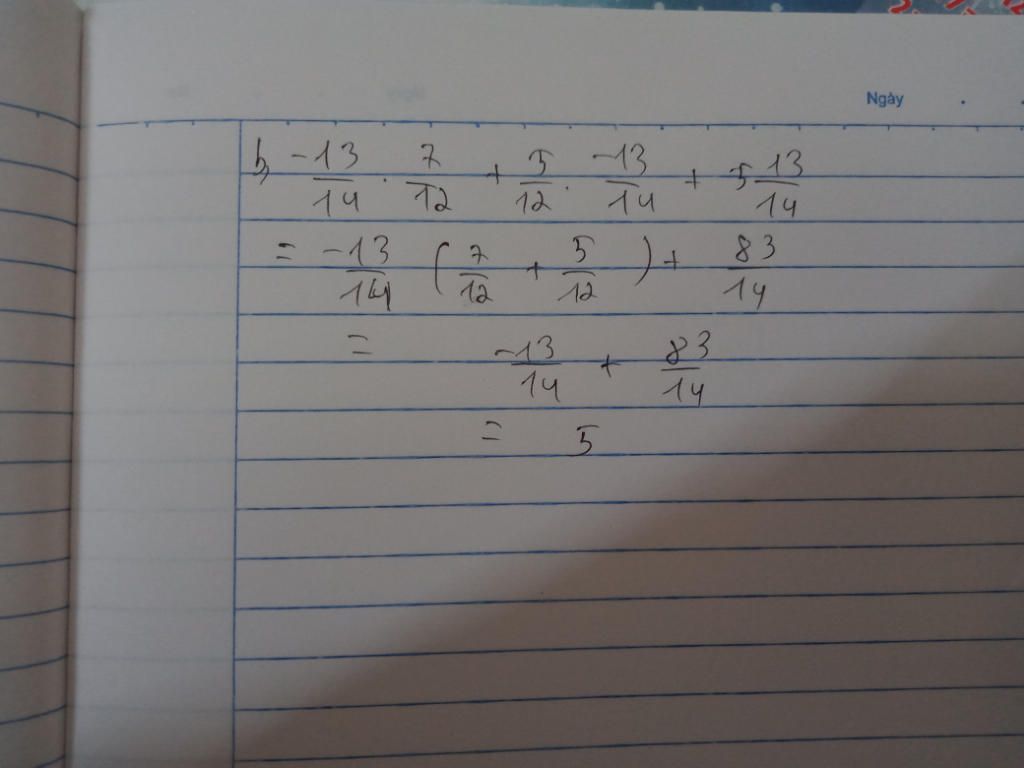 Ngày
b, -13/14 . 7/12 + 5/12 . -13/14 + 5 13/14
= -13/14 ( 7/12 + 5/12 ) + 83/14
= -13/14 + 83/14
= 5